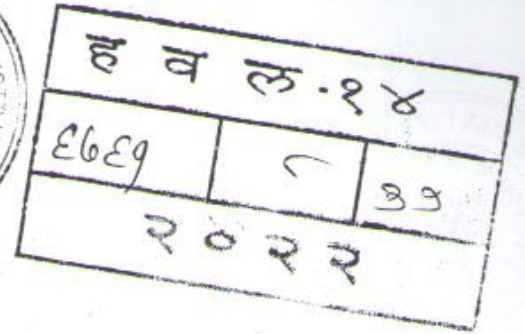 ह व ल-१४
६७६१ ८
२०२२